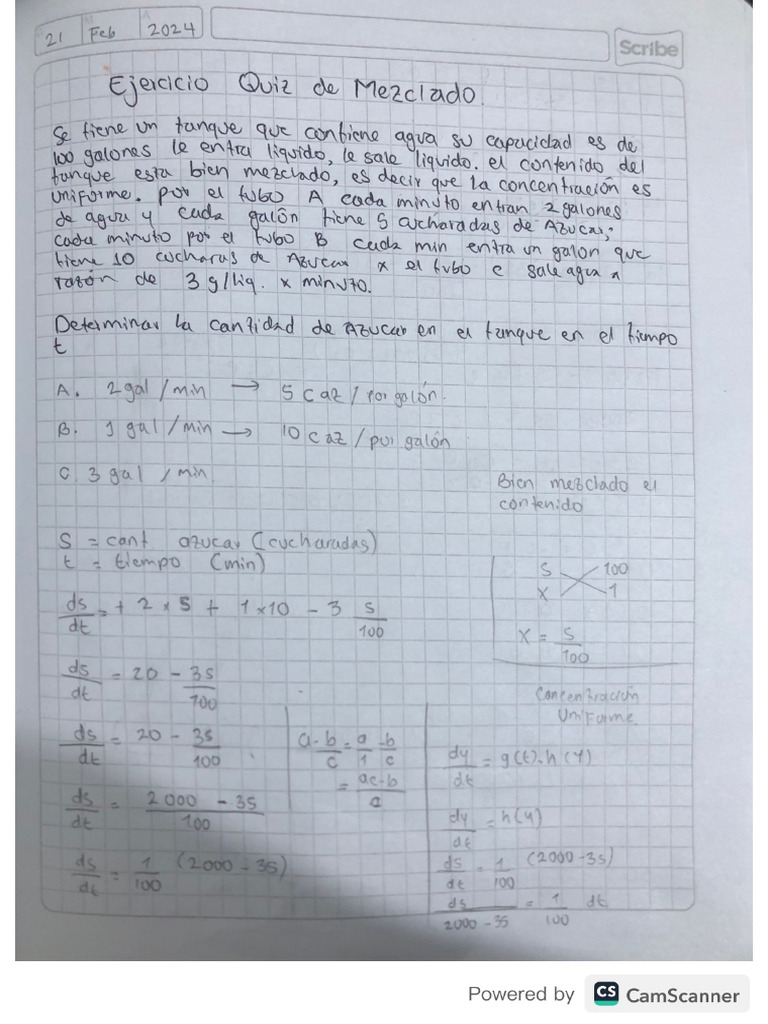 21 Feb 2024
Scribe
Ejercicio Quiz de Mezclado.
Se tiene un tanque que contiene agua su capacidad es de
100 galones le entra liquido, le sale liquido. el contenido del
tanque esta bien mezclado, es decir que la concentración es
uniforme. por el tubo A cada minuto entran 2 galones
de agua y cada galón tiene 5 cucharadas de Azucar,
cada minuto por el tubo B cada min entra un galon que
tiene 10 cucharas de Azucar x el tubo c sale agua a
razón de 3 g/liq. x minuto.
Determinar la cantidad de Azucar en el tanque en el tiempo
t
A. 2 gal/min → 5 c az / por galón.
B. 1 gal/min → 10 c az / por galón
C 3 gal /min
Bien mezclado el
contenido
S = cant azucar (cucharadas)
t = tiempo (min)
S 100
x 1
x = S/100
ds/dt = + 2 x 5 + 1x10 - 3 S/100
ds/dt = 20 - 3S/100
Concentración
Uniforme
ds/dt = 20 - 3S/100
a - b/c = a/1 - b/c
= ac-b/c
dy/dt = g(t).h(y)
ds/dt = 2000 - 3S/100
dy/dt = h(y)
ds/dt = 1/100 (2000 - 3S)
ds/dt = 1/100 (2000 - 3S)
ds/2000 - 3S = 1/100 dt
Powered by CS CamScanner